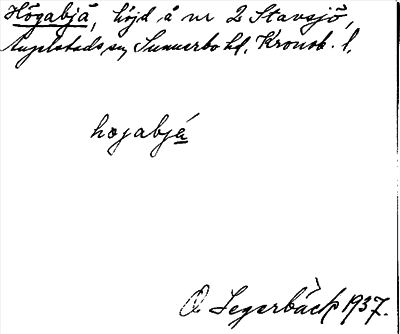 Högabjä, höjd å nr 2 Stavsjö,
Angelstads sn, Sunnerbo hd. Kronob. l.
hogabjá
O Segerbäck 1937.